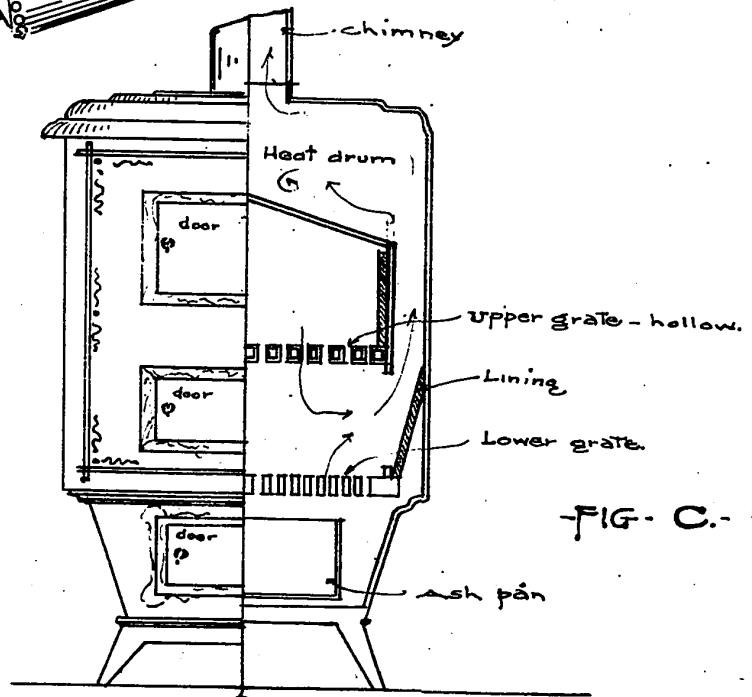 chimney
Heat drum
door
upper grate - hollow.
Lining
door
Lower grate.
-FIG- C.-
door
Ash pan